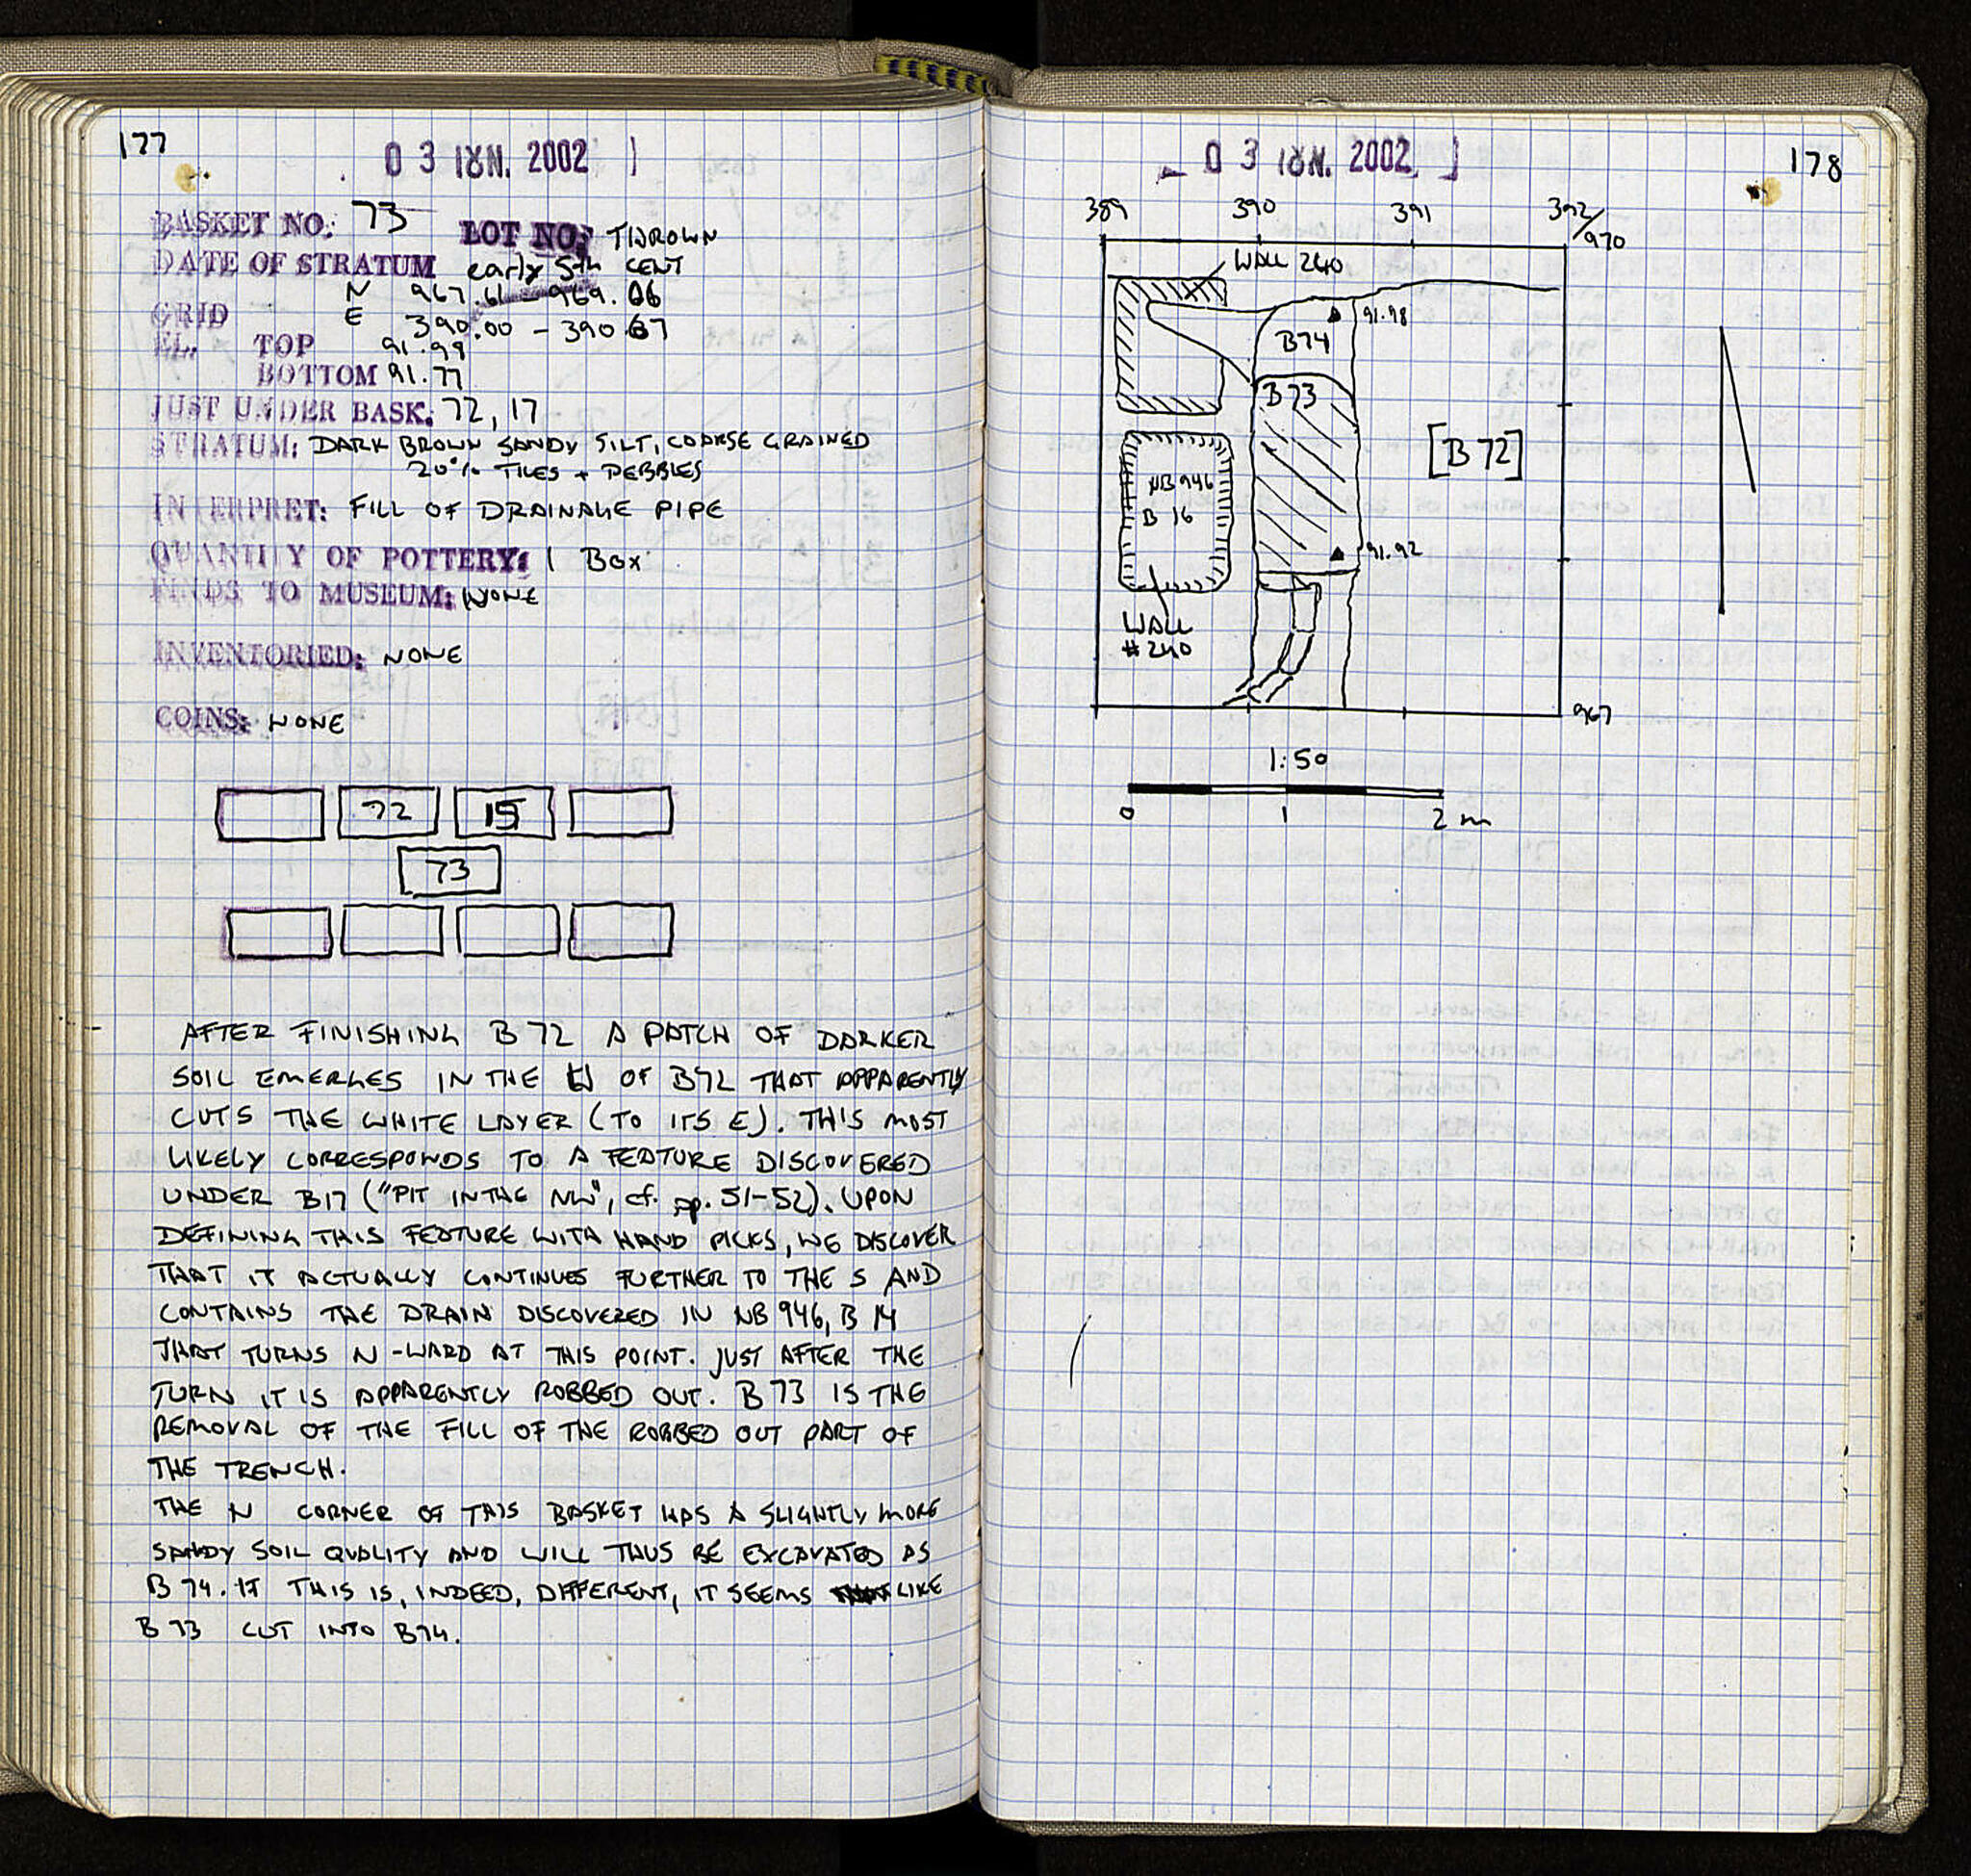 177
03 ΙΟΥΝ. 2002
BASKET NO: 73 LOT NO: THROWN
DATE OF STRATUM early 5th CENT
GRID N 967.61 - 969.06
E 390.00 - 390.67
EL. TOP 91.99
BOTTOM 91.77
JUST UNDER BASK: 72, 17
STRATUM: DARK BROWN SANDY SILT, COARSE GRAINED
20% TILES + PEBBLES
INTERPRET: FILL OF DRAINAGE PIPE
QUANTITY OF POTTERY: 1 BOX
FINDS TO MUSEUM: NONE
INVENTORIED: NONE
COINS: NONE
72 15
73
AFTER FINISHING B 72 A PATCH OF DARKER
SOIL EMERGES IN THE W OF B72 THAT APPARENTLY
CUTS THE WHITE LAYER (TO ITS E). THIS MOST
LIKELY CORRESPONDS TO A FEATURE DISCOVERED
UNDER B17 ("PIT IN THE NW", cf. pp. 51-52). UPON
DEFINING THIS FEATURE WITH HAND PICKS, WE DISCOVER
THAT IT ACTUALLY CONTINUES FURTHER TO THE S AND
CONTAINS THE DRAIN DISCOVERED IN NB 946, B 14
THAT TURNS N-WARD AT THIS POINT. JUST AFTER THE
TURN IT IS APPARENTLY ROBBED OUT. B 73 IS THE
REMOVAL OF THE FILL OF THE ROBBED OUT PART OF
THE TRENCH.
THE N CORNER OF THIS BASKET HAS A SLIGHTLY MORE
SANDY SOIL QUALITY AND WILL THUS BE EXCAVATED AS
B 74. IF THIS IS, INDEED, DIFFERENT, IT SEEMS LIKE
B 73 CUT INTO B74.
03 ΙΟΥΝ. 2002
178
389 390 391 392/970
WALL 240
91.98
B74
B73
[B 72]
NB 946
B 16
91.92
WALL
#240
967
1:50
0 1 2 m